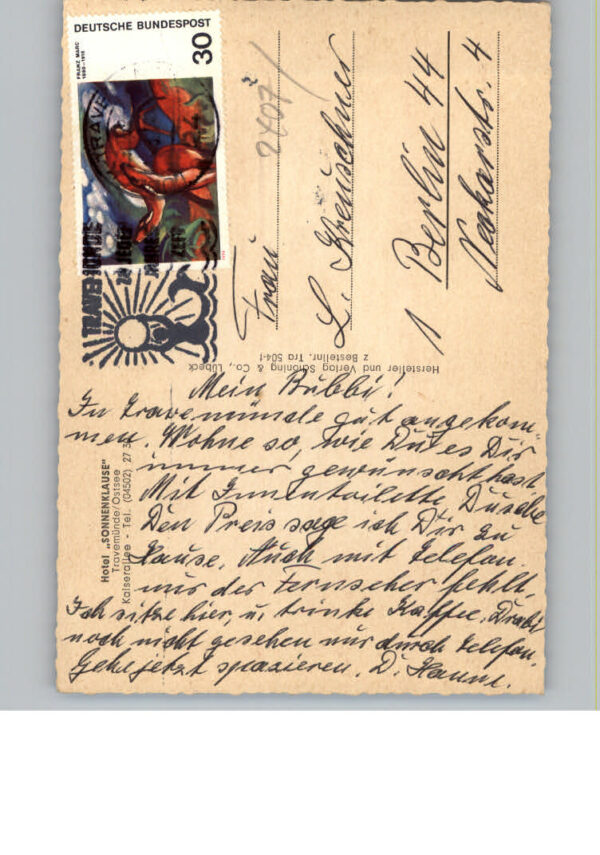 DEUTSCHE BUNDESPOST
30
FRANZ MARC
1880-1916
TRAVEMÜNDE
24
Frau
L. Kreuschner
1 Berlin 44
Neckarstr. 4
2407/
Hersteller und Verlag Schöning & Co., Lübeck
z Bestellnr. Tra 504-1
Hotel „SONNENKLAUSE"
Travemünde/Ostsee
Kaiserallee - Tel. (04502) 27 3
Mein Bubbi!
In Travemünde gut angekom-
men. Wohne so, wie Du es Dir
immer gewünscht hast
Mit Innentoilette Dusche
Den Preis sage ich Dir zu
Hause. Auch mit Telefon.
nur der Fernseher fehlt,
Ich sitze hier, u. trinke Kaffee.
noch nicht gesehen nur durch Telefon.
Gehe jetzt spazieren. D. Hanne.